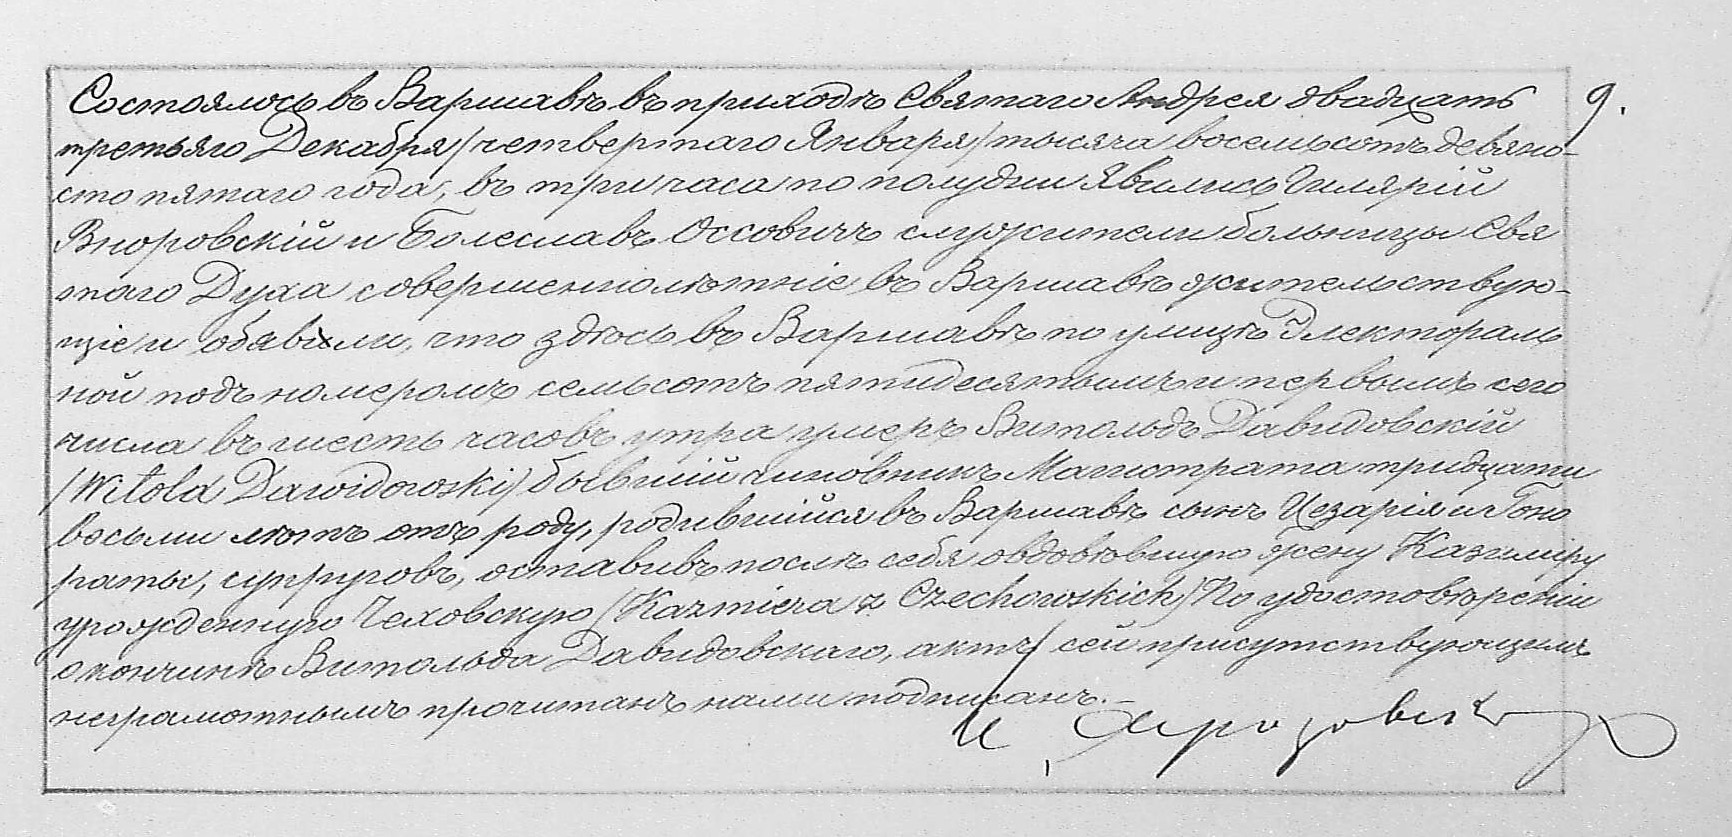 Состоялось въ Варшавѣ въ приходѣ Святаго Андрея двадцать 9.
третьяго Декабря /четвертаго Января/ тысяча восемьсотъ девяно-
сто пятаго года, въ три часа по полудни Явились Гилярій
Вноровскій и Болеславъ Оссовичъ служители больницы Свя
таго Духа совершеннолѣтніе, въ Варшавѣ жительствую-
щіе и обявили, что здѣсь въ Варшавѣ по улицѣ Электораль
ной подъ номеромъ семьсотъ пятидесятымъ и первымъ сего
числа въ шесть часовъ утра умеръ Витольдъ Давидовскій
/Witold Dawidowski/ бывшій чиновникъ Магистрата тридцати
восьми лѣтъ отъ роду, родившійся въ Варшавѣ сынъ Цезарія и Гоно
раты, супруговъ, оставивъ послѣ себя овдовѣвшую жену Казиміру
урожденную Чеховскую /Kazmiera z Czechowskich/ По удостовѣреніи
о кончинѣ Витольда Давидовскаго, актъ сей присутствующимъ
неграмотнымъ прочитанъ нами подписанъ.-